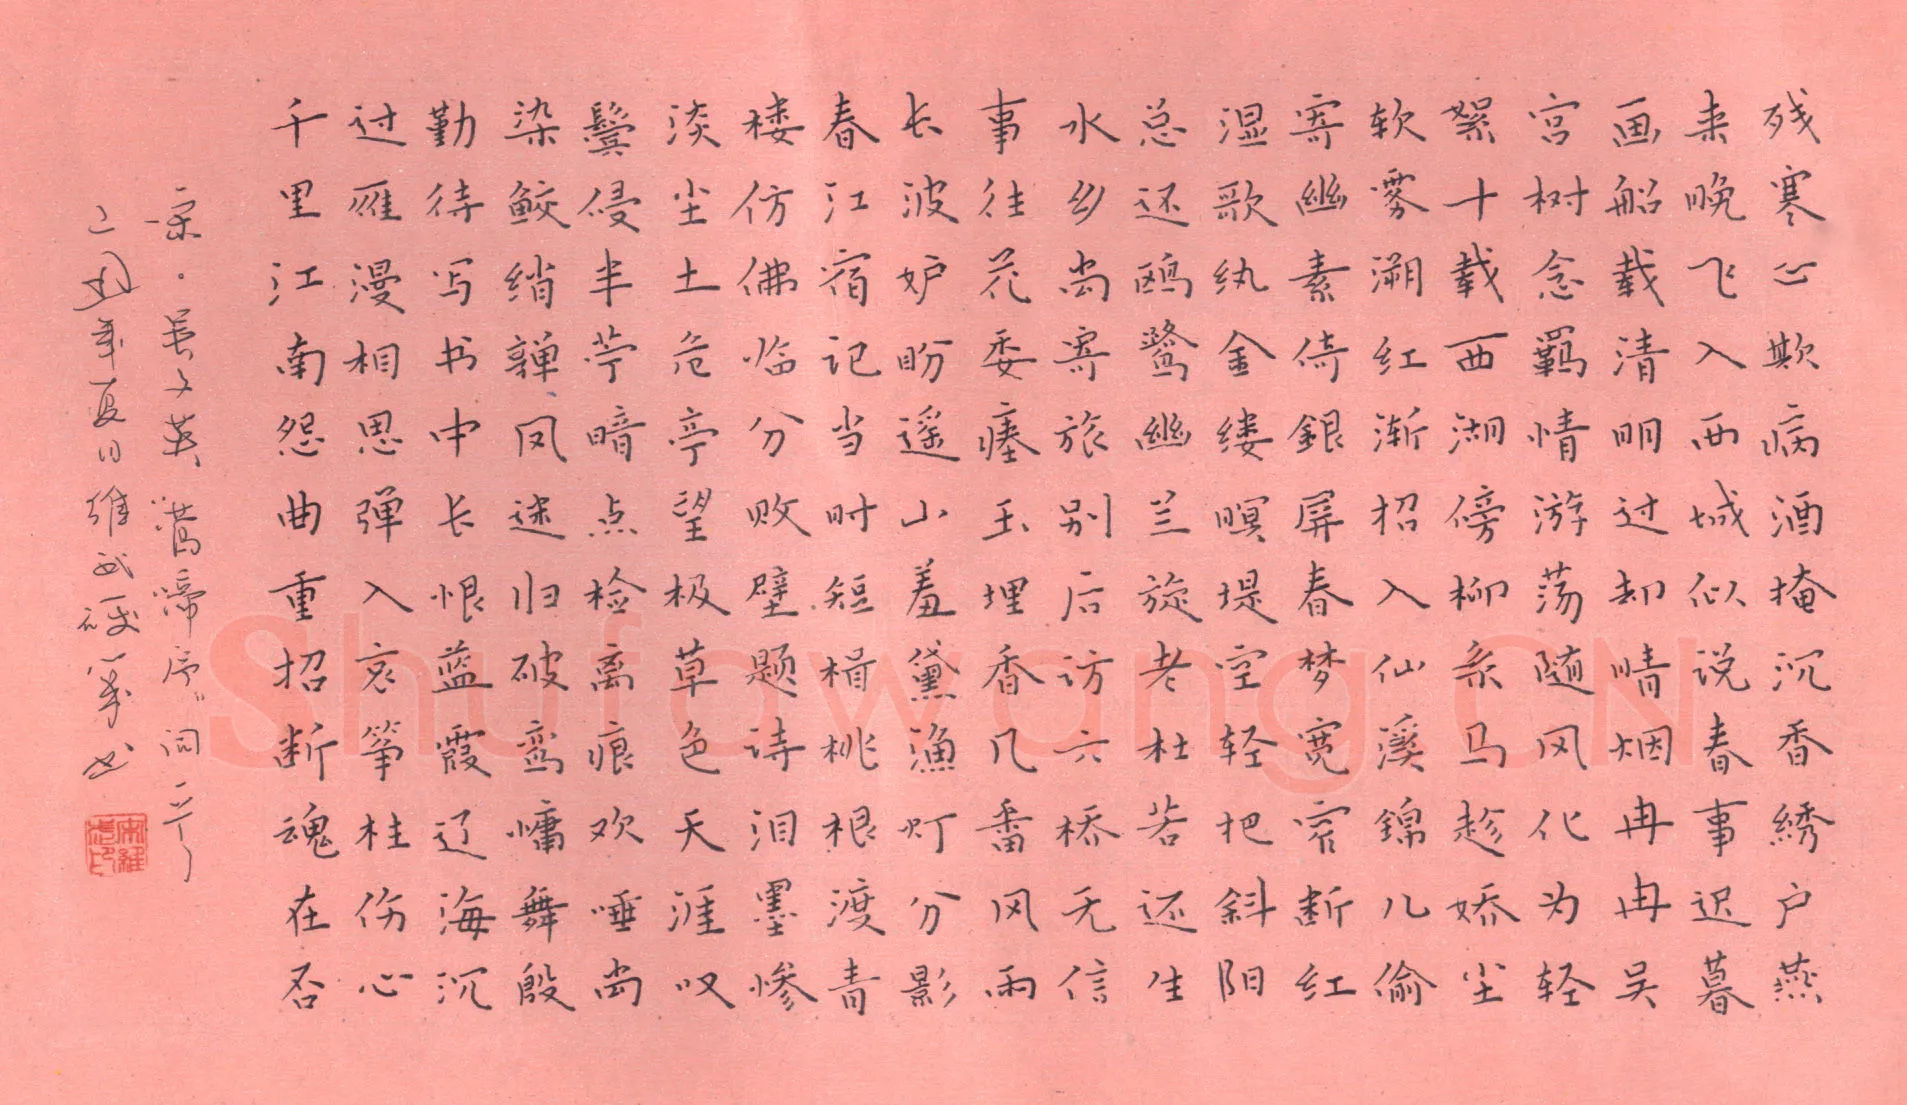 残寒正欺病酒掩沉香绣户燕
来晚飞入西城似说春事迟暮
画船载清明过却晴烟冉冉吴
宫树念羁情游荡随风化为轻
絮十载西湖傍柳系马趁娇尘
软雾溯红渐招入仙溪锦儿偷
寄幽素倚銀屏春梦宽窄断红
湿歌纨金缕暝堤空轻把斜阳
总还鸥鹭幽兰旋老杜若还生
水乡尚寄旅别后访六桥无信
事往花委瘗玉埋香几番风雨
长波妒盼遥山羞黛渔灯分影
春江宿记当时短楫桃根渡青
楼仿佛临分败壁题诗泪墨惨
淡尘土危亭望极草色天涯叹
鬓侵半苧暗点检离痕欢唾尚
染鲛绡亸凤迷归破鸾慵舞殷
勤待写书中长恨蓝霞辽海沉
过雁漫相思弹入哀筝柱伤心
千里江南怨曲重招断魂在否
宋·吴文英莺啼序词一首
年夏日维武硬笔书
宋维武印
Shufawang CN